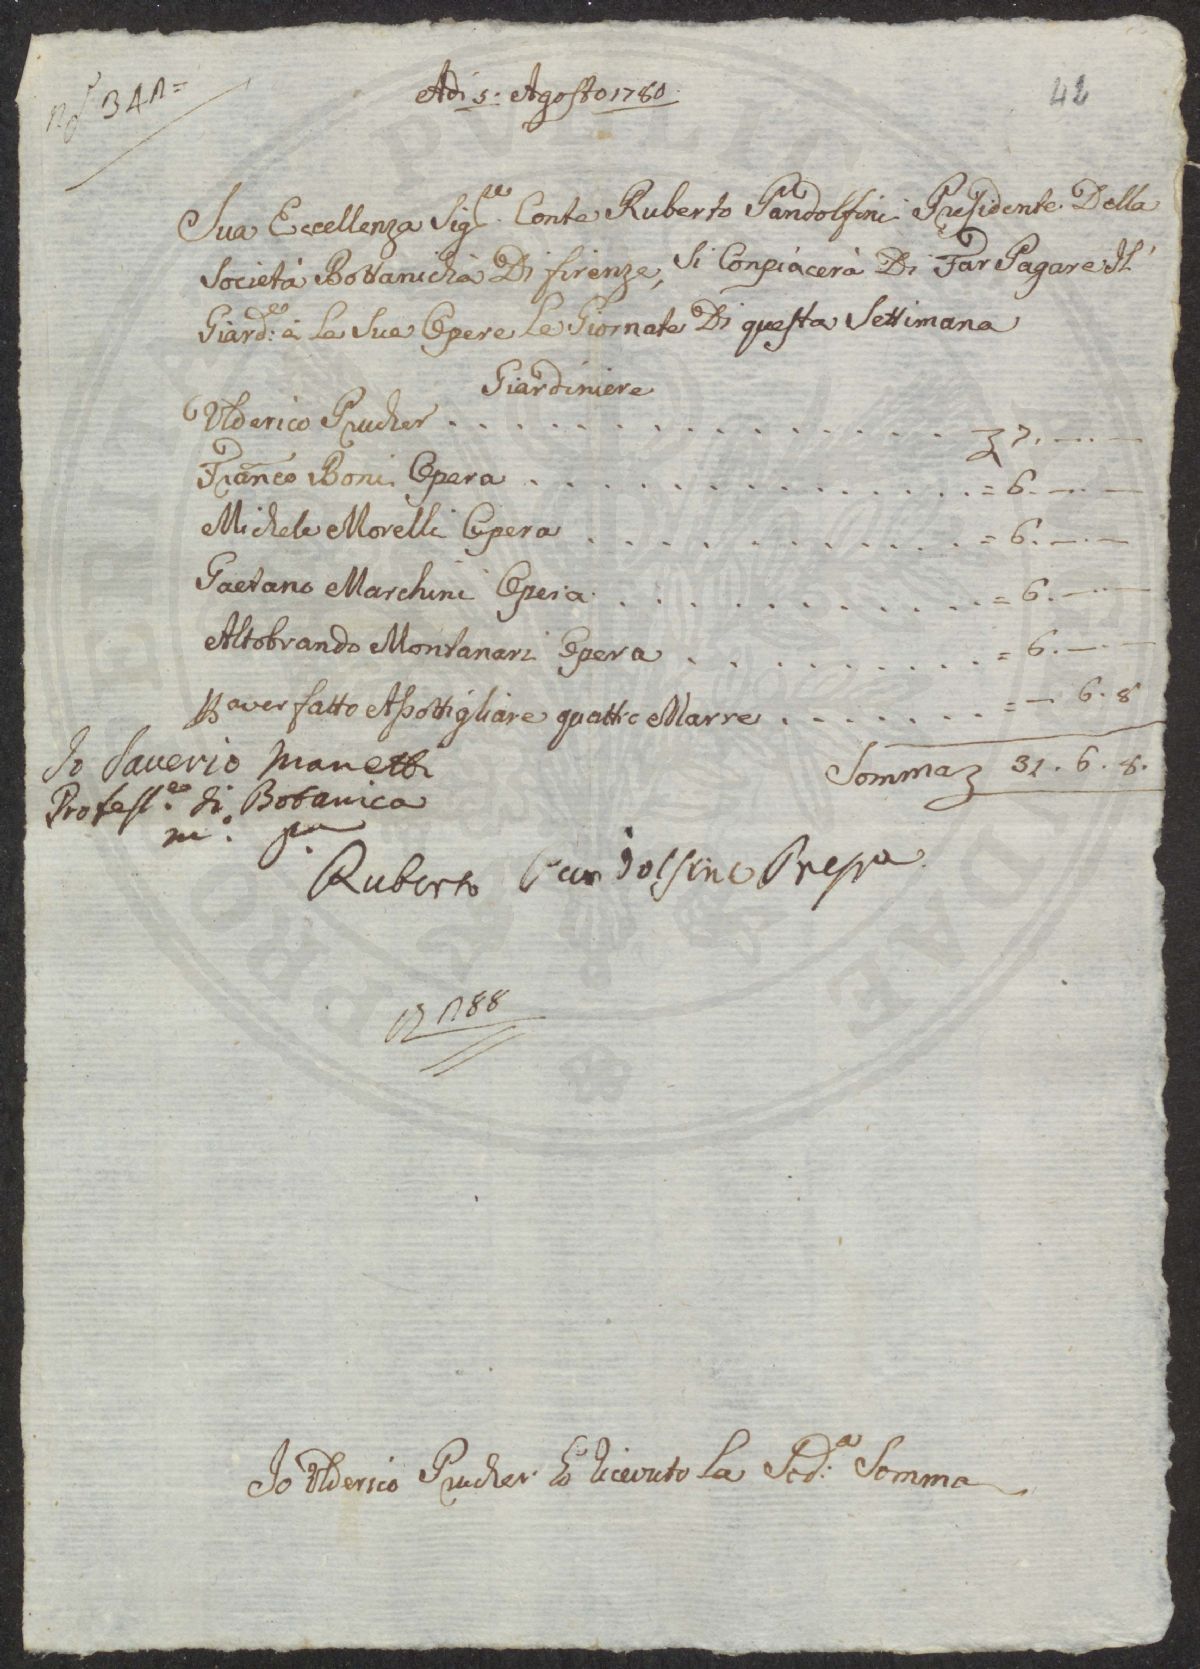 Adi 5: Agosto 1780
42
Sua Eccellenza Sig.re Conte Ruberto Pandolfini Presidente Della
Società Bottanicha Di firenze, Si Conpiacerà Di Far Pagare Il
Giard:e e Le Sue Opere Le Giornate Di questa Settimana
Giardiniere
Ulderico Prucher . . . . . . . . . . . . . . . . . 7. — —
Franco Boni Opera . . . . . . . . . . . . . = 6. — —
Michele Morelli Opera . . . . . . . . . . . = 6. — —
Gaetano Marchini Opera . . . . . . . . . . = 6. — —
Altobrando Montanari Opera . . . . . . . . = 6. — —
P aver fatto Apottigliare quattro Marre . . . . . . . = — 6. 8
Somma 31. 6. 8.
Io Saverio Manetti
Profess.e di Botanica
m.o p.a
Ruberto Pandolfini Pres.
Io Ulderico Prucher ho ricevuto La Sod:a Somma
PVBLIC AE